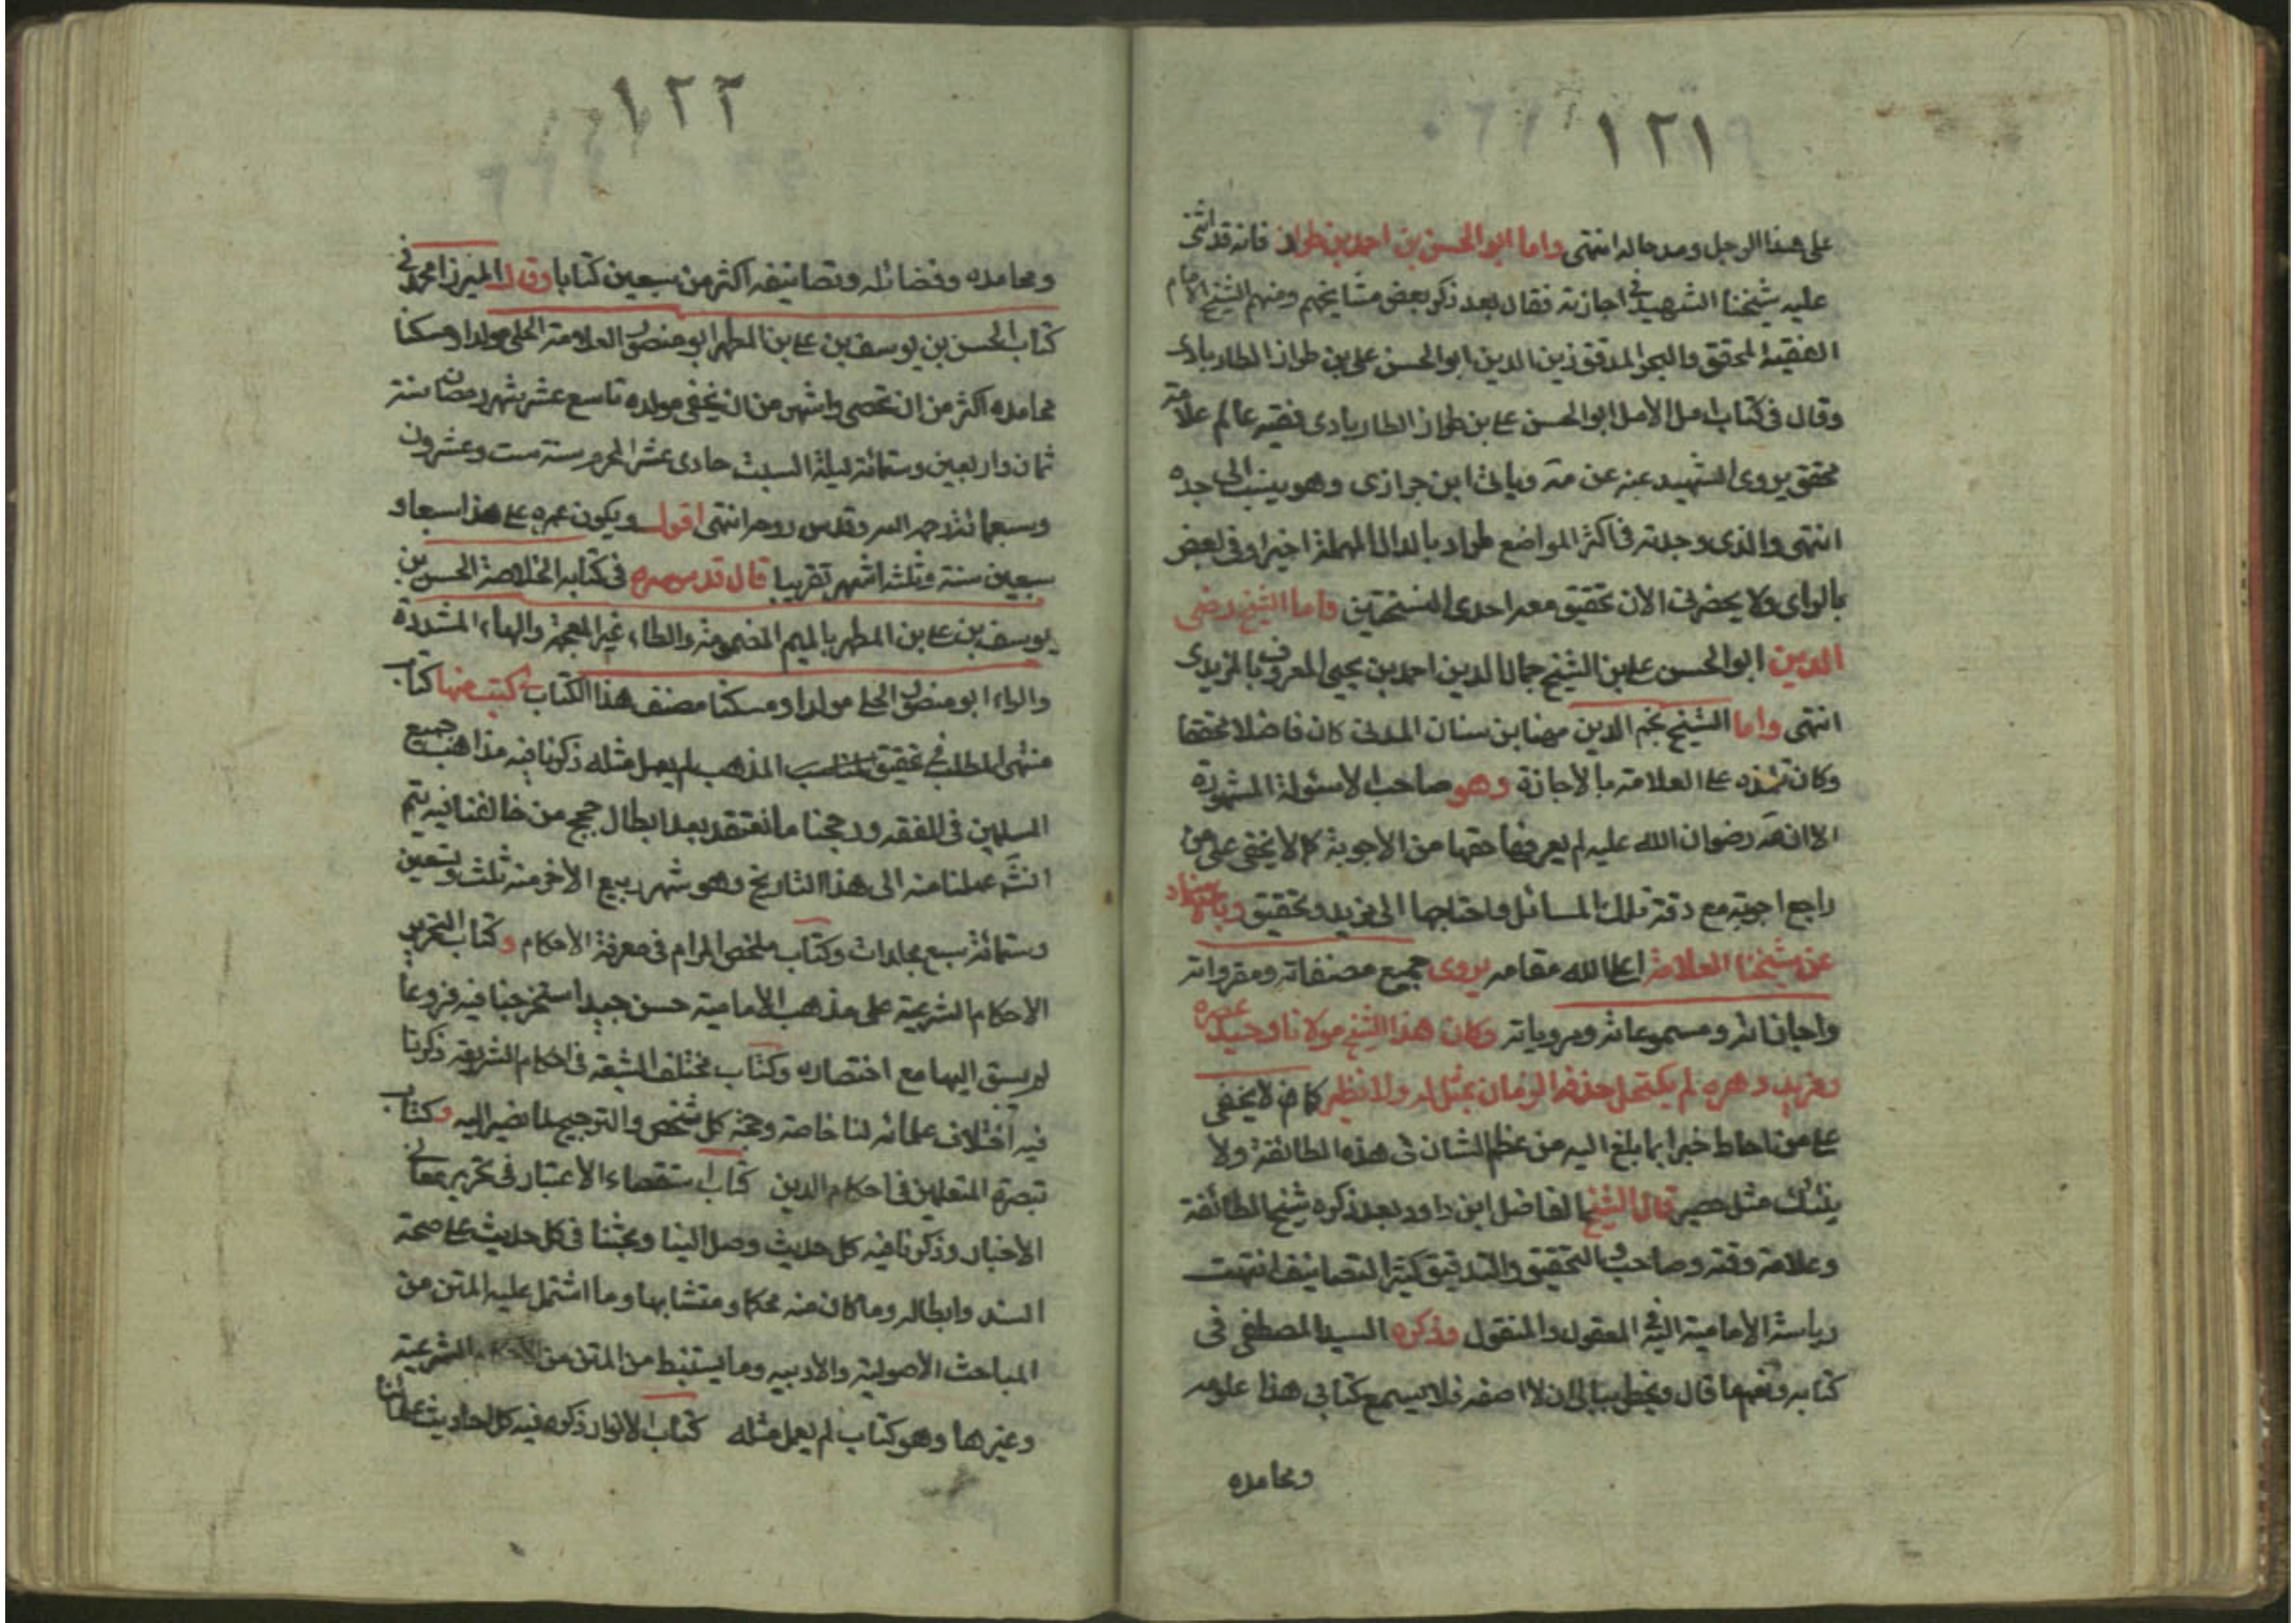 ١٢١
على هذا الرجل ومدحاله انتهى واما ابو الحسن بن احمد بن طراد فانه قد اثنى
عليه شيخنا الشهيد في اجازته فقال بعد ذكر بعض مشايخهم ومنهم الشيخ الامام
الفقيه المحقق والبحر المدقق زين الدين ابو الحسن علي بن طراز المطاربادى
وقال في كتاب امل الامل ابو الحسن علي بن طراز المطاربادى فقيه عالم علامة
محقق يروى الشهيد عنه عن مة وياتى ابن جرازى وهو ينسب الى جده
انتهى والذى وجدته في اكثر المواضع طراد بالدال المهملة اخيرا وفى بعض
بالراى ولا يحضرنى الان تحقيق معه احدى النسختين واما الشيخ رضى
الدين ابو الحسن على بن الشيخ جمال الدين احمد بن يحيى المعروف بالمزيدى
انتهى واما الشيخ نجم الدين مهنا بن سنان المدنى كان فاضلا محققا
وكان تلمذه على العلامة بالاجازة وهو صاحب الاسئولة المشهورة
الا انه رضوان الله عليه لم يعرفها حقها من الاجوبة كما لا يخفى على من
راجع اجوبته مع دقة تلك المسائل واحتاجها الى مزيد وتحقيق وبالاسناد
عن شيخنا العلامة اعلا الله مقامه يروى جميع مصنفاته ومقرواته
واجازاته ومسموعاته ومروياته وكان هذا الشيخ مولانا وحيد عصره
وفريد دهره لم يكتحل حدقه الزمان بمثل له ولا نظير كما لا يخفى
على من احاط خبرا بما بلغ اليه من عظم الشان فى هذه الطائفة ولا
ينبئك مثل خبير قال الشيخ الفاضل ابن داود بعد ذكره شيخ الطائفة
وعلامة وقته وصاحب التحقيق والتدقيق كثير التصانيف انتهت
رياسة الامامية اليه في المعقول والمنقول وذكره السيد المصطفى فى
كتابه ونعم ما قال ويخطر ببالى ان لا اصفه فلا يسع كتابى هذا علومه
ومحامده
١٢٢
ومحامده وفضائله وتصانيفه اكثر من سبعين كتابا وقال الميرزا محمد في
كتاب الحسن بن يوسف بن علي بن المطهر ابو منصور العلامة الحلى مولدا ومسكنا
محامده اكثر من ان تحصى واشهر من ان يخفى مولده تاسع عشر شهر رمضان سنة
ثمان واربعين وستمائة ليلة السبت حادى عشر المحرم سنة ست وعشرون
وسبعمائة رحمه الله وقدس روحه انتهى اقول ويكون عمره على هذا سبعا و
سبعين سنة وثلثة اشهر تقريبا قال قدس سره فى كتابه الخلاصة الحسن بن
يوسف بن على بن المطهر بالميم المضمومة والطاء غير المعجمة والهاء المشددة
والراء ابو منصور الحلى مولدا ومسكنا مصنف هذا الكتاب له كتب منها كتاب
منتهى المطلب فى تحقيق المذهب لم يعمل مثله ذكرنا فيه مذاهب جميع
المسلمين فى الفقه ورجحنا ما نعتقد بعد ابطال حجج من خالفنا فيه يتم
انشَ عملنا منه الى هذا التاريخ وهو شهر ربيع الاخر منه ثلث وتسعين
وستمائة سبع مجلدات وكتاب ملخص المرام فى معرفة الاحكام وكتاب التحرير
الاحكام الشرعية على مذهب الامامية حسن جيد استخرجنا فيه فروعاً
لم يسبق اليها مع اختصاره وكتاب مختلف الشيعه فى احكام الشريعة ذكرنا
فيه اختلاف علمائه لنا خاصة وحجة كل شخص والترجيح لما نصير اليه وكتاب
تبصرة المتعلمين فى احكام الدين كتاب استقصاء الاعتبار فى تحرير معانى
الاخبار وذكرنا فيه كل حديث وصل الينا وبحثنا فى كل حديث على صحة
السند وابطاله وما كان منه محكما ومتشابها وما اشتمل عليه المتن من
المباحث الاصولية والادبيه وما يستنبط من المتن من الاحكام الشرعية
وغيرها وهو كتاب لم يعمل مثله كتاب الانوار ذكره فيه كل احاديث علمائنا